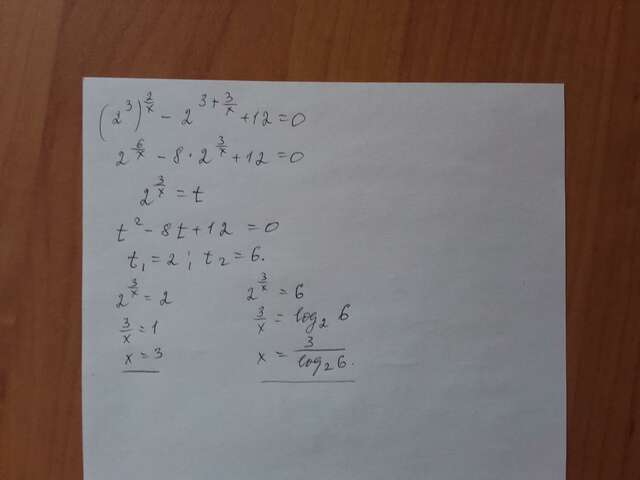 (2^3)^{2/x} - 2^{3+3/x} + 12 = 0
2^{6/x} - 8 · 2^{3/x} + 12 = 0
2^{3/x} = t
t^2 - 8t + 12 = 0
t_1 = 2 ; t_2 = 6.
2^{3/x} = 2
3/x = 1
x = 3
2^{3/x} = 6
3/x = log_2 6
x = 3/log_2 6.